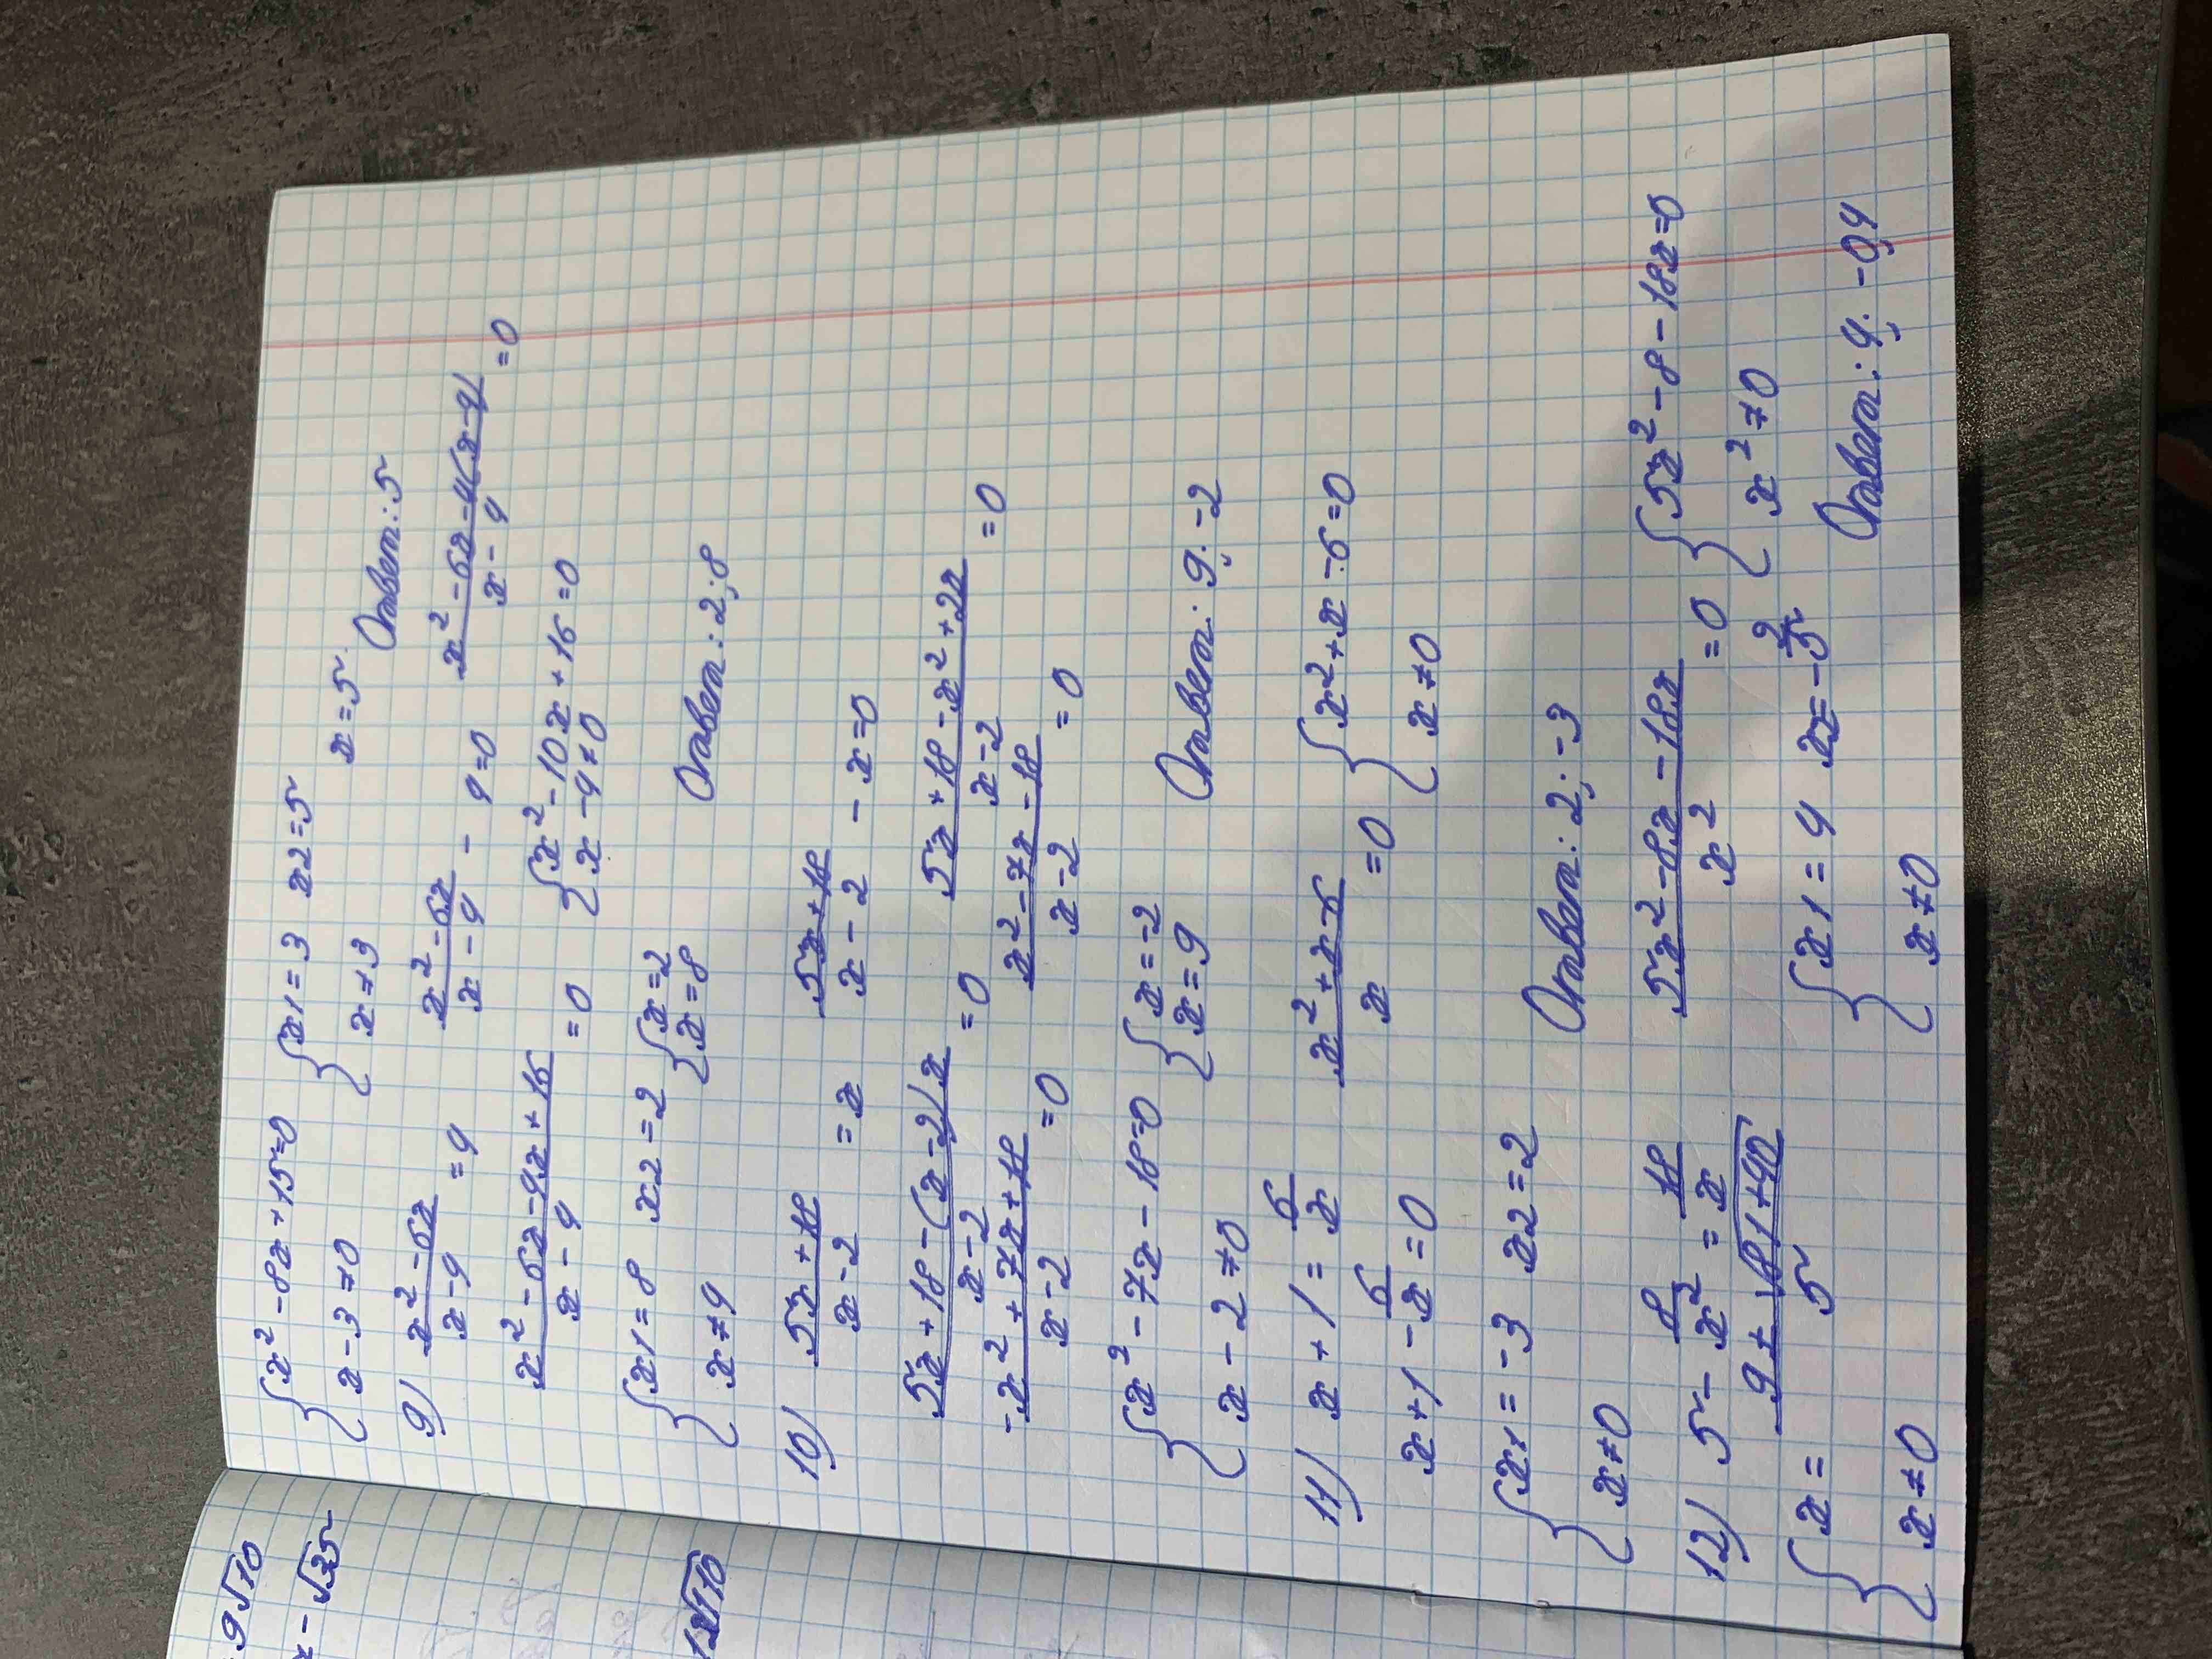 9√10
- √35
12√10
{x² - 8x + 15 = 0 {x1 = 3 x2 = 5 x = 5
x - 3 ≠ 0 x ≠ 3 Ответ: 5
9) (x² - 6x)/(x - 4) = 4 (x² - 6x)/(x - 4) - 4 = 0 (x² - 6x - 4(x - 4))/(x - 4) = 0
(x² - 6x - 4x + 16)/(x - 4) = 0 {x² - 10x + 16 = 0
x - 4 ≠ 0
{x1 = 8 x2 = 2 {x = 2
x = 8
x ≠ 4 Ответ: 2; 8
10) (5x + 18)/(x - 2) = x (5x + 18)/(x - 2) - x = 0
(5x + 18 - (x - 2)x)/(x - 2) = 0 (5x + 18 - x² + 2x)/(x - 2) = 0
(-x² + 7x + 18)/(x - 2) = 0 (x² - 7x - 18)/(x - 2) = 0
{x² - 7x - 18 = 0 {x = -2
x = 9
x - 2 ≠ 0 Ответ: 9; -2
11) x + 1 = 6/x (x² + x - 6)/x = 0 {x² + x - 6 = 0
x + 1 - 6/x = 0 x ≠ 0
{x1 = -3 x2 = 2
x ≠ 0 Ответ: 2; -3
12) 5 - 8/x² = 18/x (5x² - 8x - 18x)/x² = 0 {5x² - 8 - 18x = 0
x² ≠ 0
{x = (9 ± √81 + 40)/5 {x1 = 4 x = -2/5
x ≠ 0 x ≠ 0 Ответ: 4; -0,4